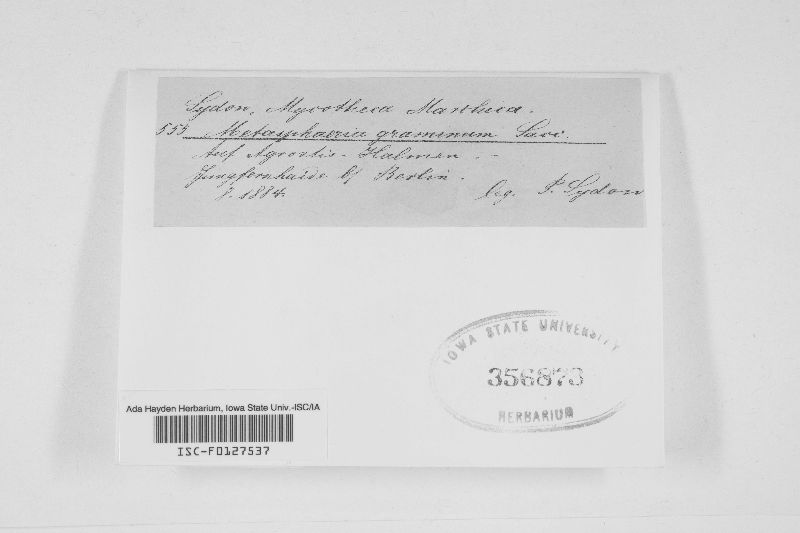 Sydow, Mycotheca Marchica.
555 Metasphaeria graminum Sacc.
Auf Agrostis-Halmen. -
Jungfernhaide b/ Berlin.
7. 1884. leg. P. Sydow
IOWA STATE UNIVERSITY
356873
HERBARIUM
Ada Hayden Herbarium, Iowa State Univ.-ISC/IA
ISC-F0127537